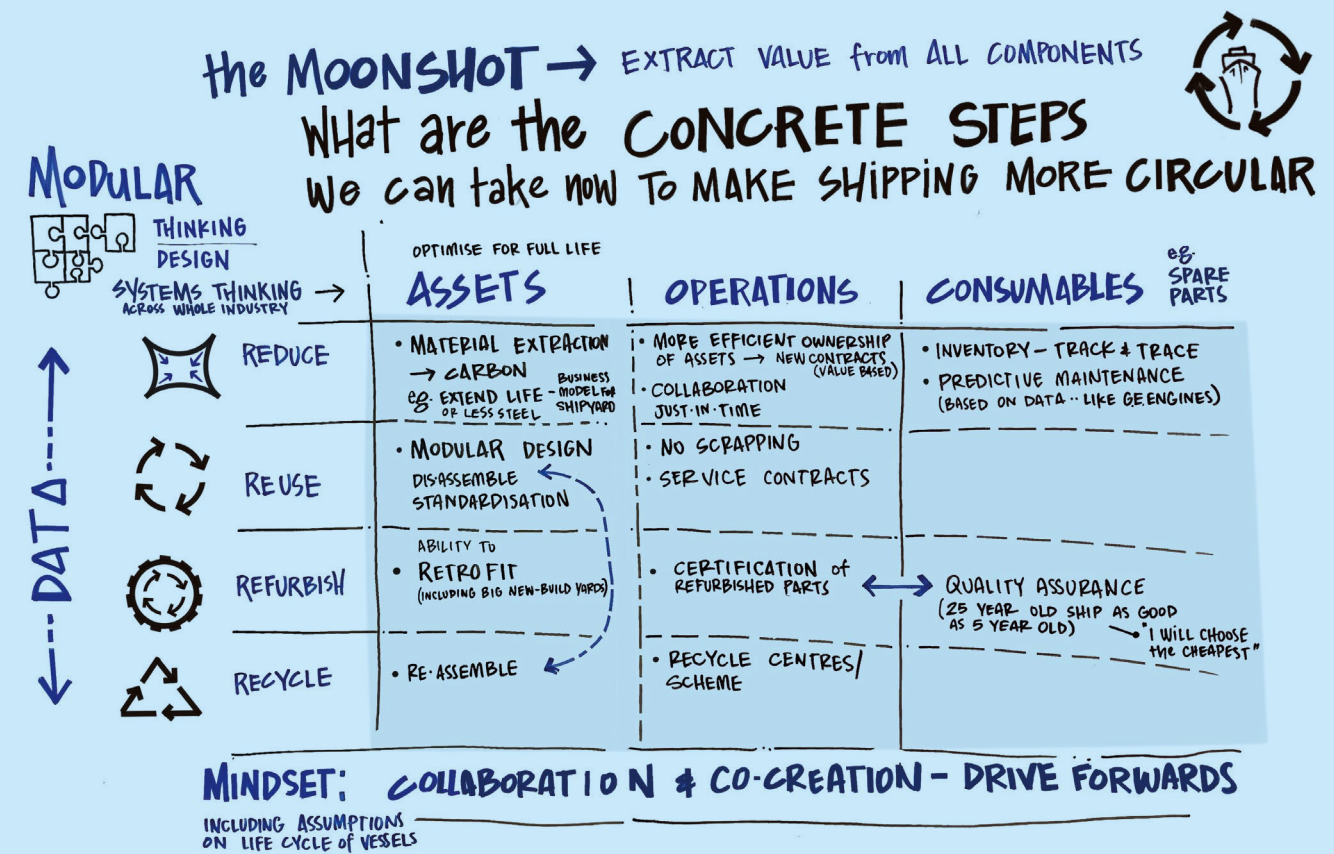 the MOONSHOT → EXTRACT VALUE from ALL COMPONENTS
WHat are the CONCRETE STEPS
We can take now To MAKE SHIPPING MORE CIRCULAR
MODULAR
THINKING
DESIGN
SYSTEMS THINKING →
ACROSS WHOLE INDUSTRY
OPTIMISE FOR FULL LIFE
ASSETS
OPERATIONS
CONSUMABLES
eg.
SPARE
PARTS
DATA
REDUCE
• MATERIAL EXTRACTION
→ CARBON
eg. EXTEND LIFE – BUSINESS
OR LESS STEEL MODEL FOR
SHIPYARD
• MORE EFFICIENT OWNERSHIP
OF ASSETS → NEW CONTRACTS
(VALUE BASED)
• COLLABORATION
JUST·IN·TIME
• INVENTORY – TRACK & TRACE
• PREDICTIVE MAINTENANCE
(BASED ON DATA·· LIKE G.E. ENGINES)
REUSE
• MODULAR DESIGN
DIS·ASSEMBLE
STANDARDISATION
• NO SCRAPPING
• SERVICE CONTRACTS
REFURBISH
ABILITY TO
• RETROFIT
(INCLUDING BIG NEW-BUILD YARDS)
• CERTIFICATION of
REFURBISHED PARTS
QUALITY ASSURANCE
(25 YEAR OLD SHIP AS GOOD
AS 5 YEAR OLD)
"I WILL CHOOSE
the CHEAPEST"
RECYCLE
• RE·ASSEMBLE
• RECYCLE CENTRES/
SCHEME
MINDSET: COLLABORATION & CO-CREATION – DRIVE FORWARDS
INCLUDING ASSUMPTIONS
ON LIFE CYCLE of VESSELS